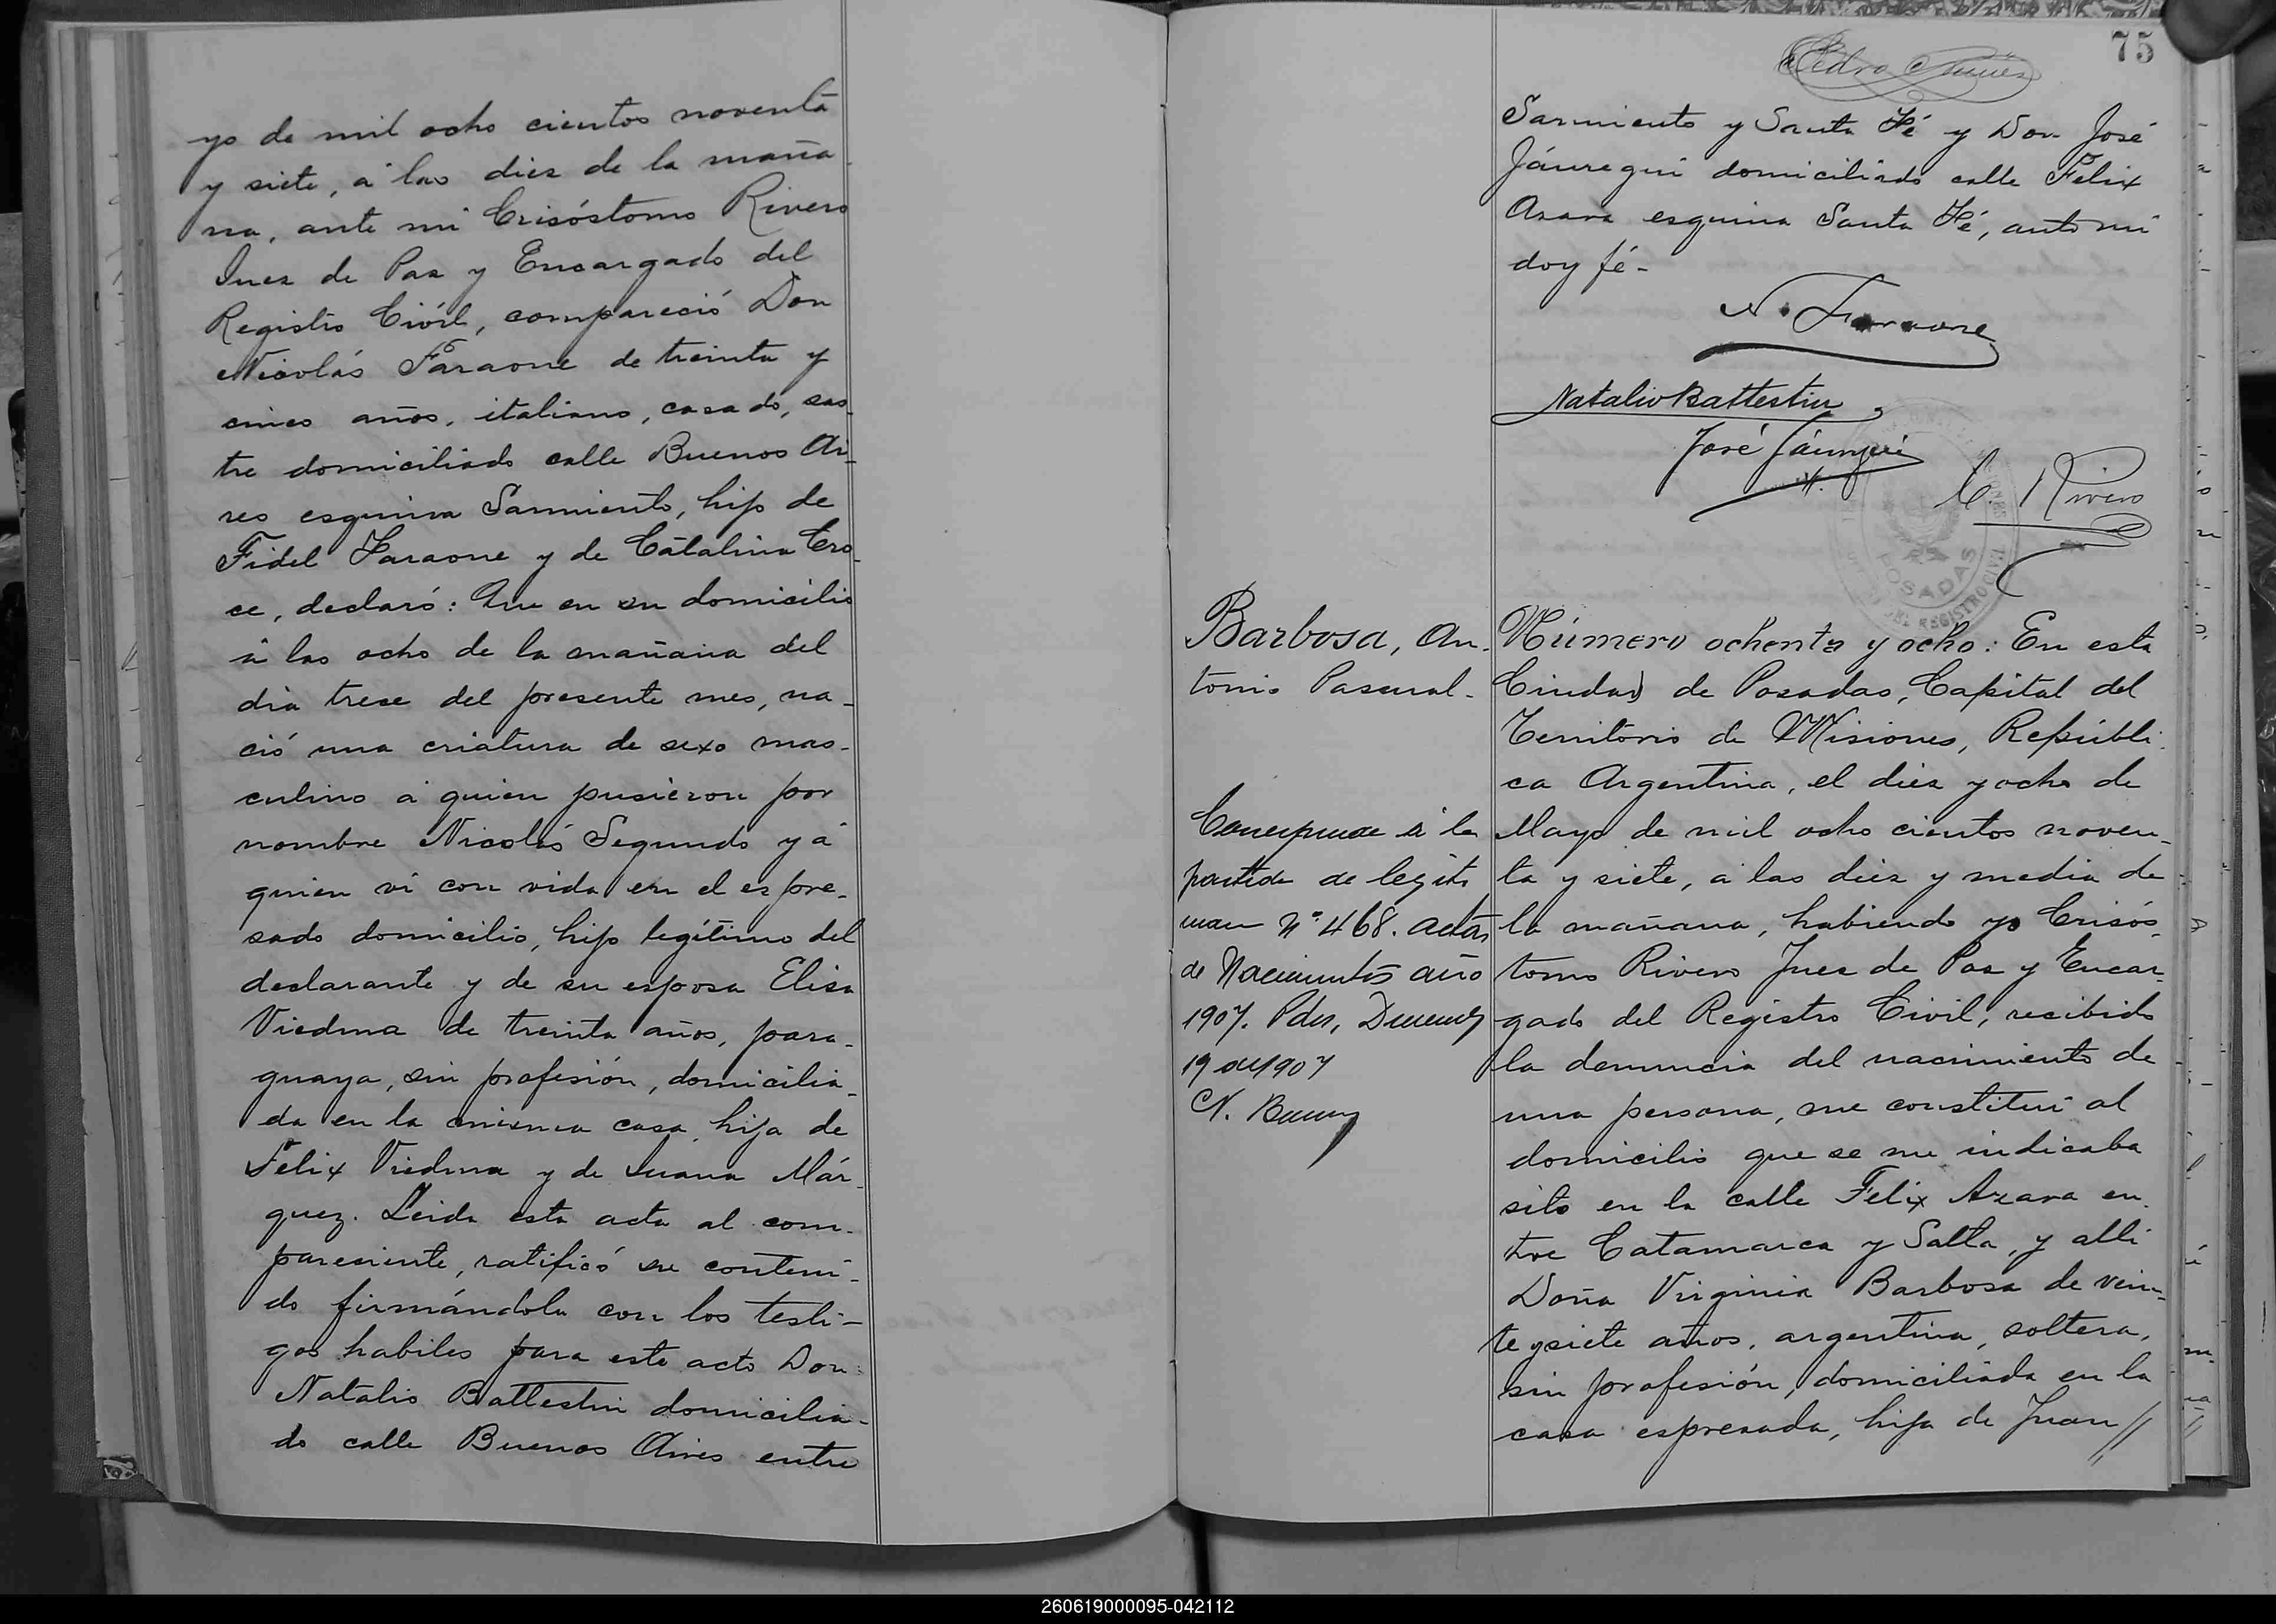 yo de mil ocho cientos noventa
y siete, á las diez de la maña
na, ante mi Crisóstomo Rivero
Juez de Paz y Encargado del
Registro Civil, compareció Don
Nicolás Faraone de treinta y
cinco años, italiano, casado, sas-
tre domiciliado calle Buenos Ai-
res esquina Sarmiento, hijo de
Fidel Faraone y de Catalina Cro-
ce, declaró: Que en su domicilio
á las ocho de la mañana del
dia trece del presente mes, na-
ció una criatura de sexo mas-
culino á quien pusieron por
nombre Nicolás Segundo y á
quien vi con vida en el espre-
sado domicilio, hijo legítimo del
declarante y de su esposa Elisa
Viedma de treinta años, para-
guaya, sin profesión, domicilia-
da en la misma casa, hija de
Felix Viedma y de Juana Már-
quez. Leida esta acta al com-
pareciente, ratificó su conteni-
do firmándola con los testi-
gos habiles para este acto Don
Natalio Battestin domicilia-
do calle Buenos Aires entre
75
Pedro Nuñez
Sarmiento y Santa Fé y Don José
Jáuregui domiciliado calle Felix
Azara esquina Santa Fé, ante mi
doy fé-
N. Faraone
Natalio Battestin
José Jáuregui
C. Rivero
POSADAS
DEL REGISTRO CIVIL
Barbosa, An-
tonio Pascual-
Corresponde á la
partida de legiti
macion Nº 468. actas
de Nacimientos año
1907. Pdas,
19 de 1907
N.
Número ochenta y ocho: En esta
Ciudad de Posadas, Capital del
Territorio de Misiones, Repúbli-
ca Argentina, el diez y ocho de
Mayo de mil ocho cientos noven-
ta y siete, á las diez y media de
la mañana, habiendo yo Crisós-
tomo Rivero Juez de Paz y Encar-
gado del Registro Civil, recibido
la denuncia del nacimiento de
una persona, me constitui al
domicilio que se me indicaba
sito en la calle Felix Azara en-
tre Catamarca y Salta, y alli
Doña Virginia Barbosa de vein-
te y siete años, argentina, soltera,
sin profesión, domiciliada en la
casa espresada, hija de Juan //
260619000095-042112